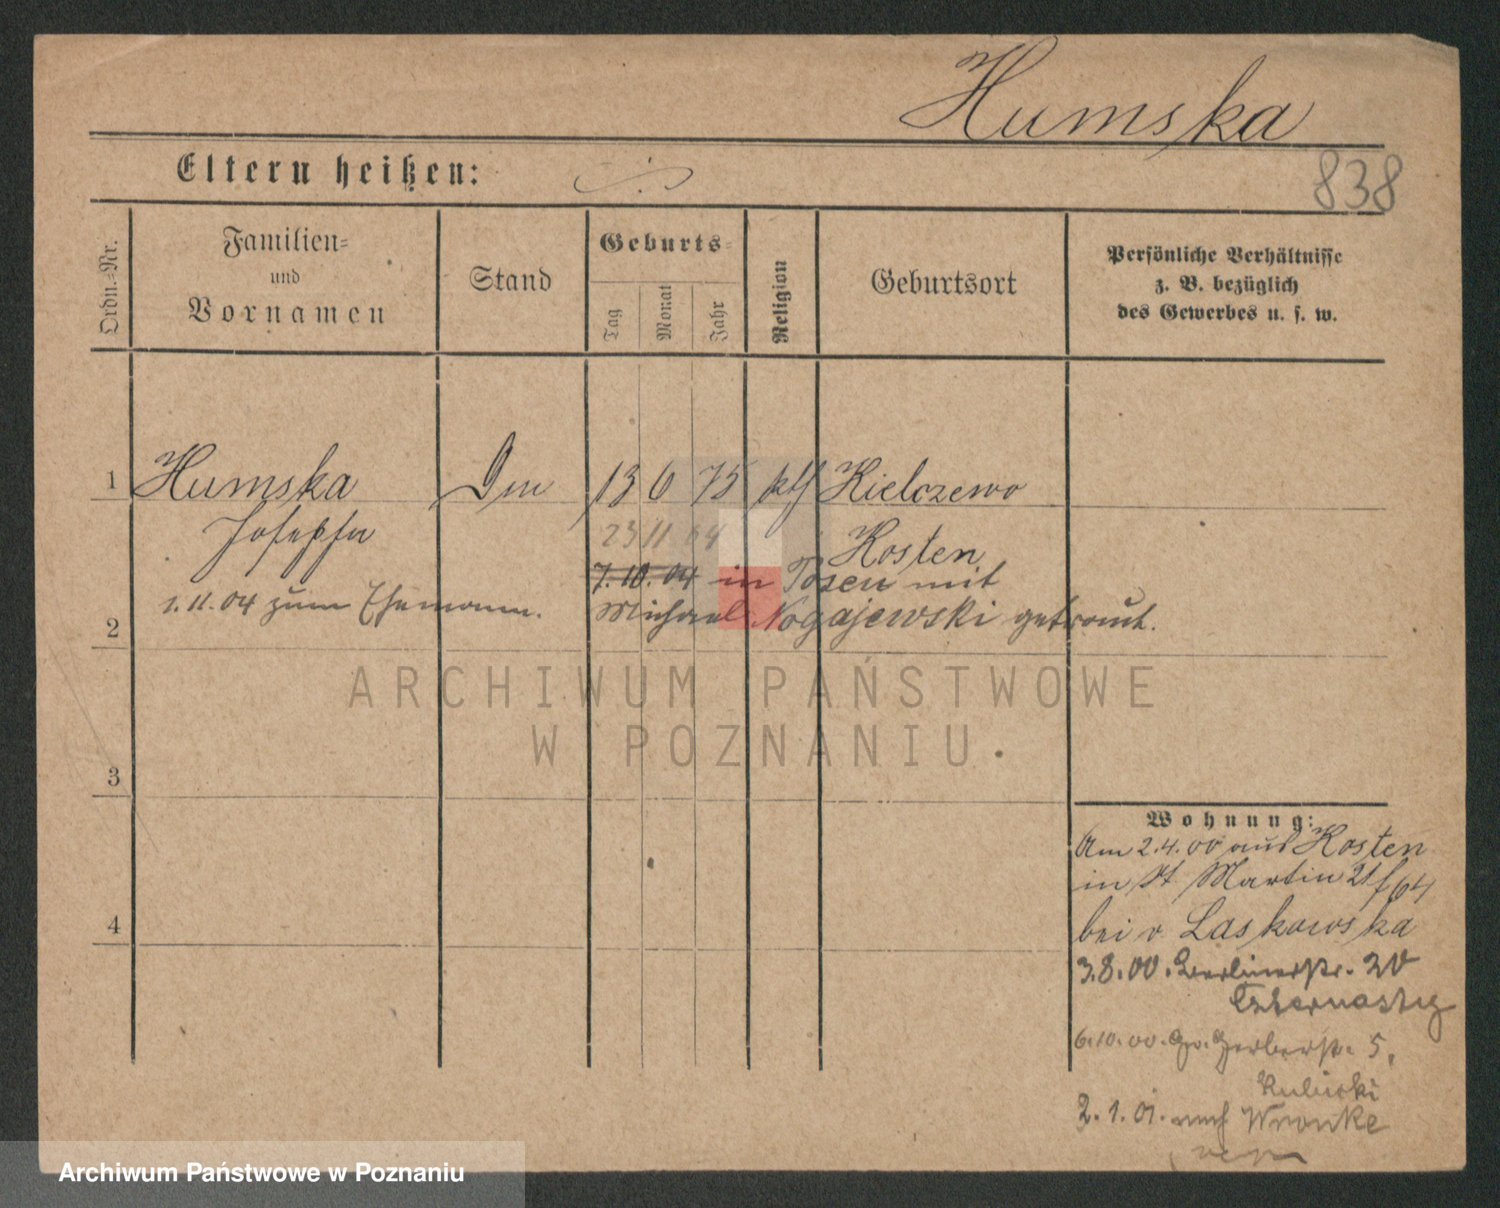 Humska
838
Eltern heißen:
Ordn.=Nr.
Familien=
und
Vornamen
Stand
Geburts=
Tag
Monat
Jahr
Religion
Geburtsort
Persönliche Verhältnisse
z. B. bezüglich
des Gewerbes u. s. w.
1
Humska
13 6 75 kth Kielczewo
Josepha
23 11 04
Kosten
7.10.04 in Posen mit
1.11.04 zum Ehemann.
Michael Nogajewski getraut.
2
ARCHIWUM PAŃSTWOWE
W POZNANIU
3
4
Wohnung:
Am 2.4.00 aus Kosten
in St Martin 64
bei v. Laskowska
3.8.00. Berlinerstr. 20
6.10.00. Gr. Gerberstr. 5,
Kubicki
2.1.01. nach Wronke
Archiwum Państwowe w Poznaniu